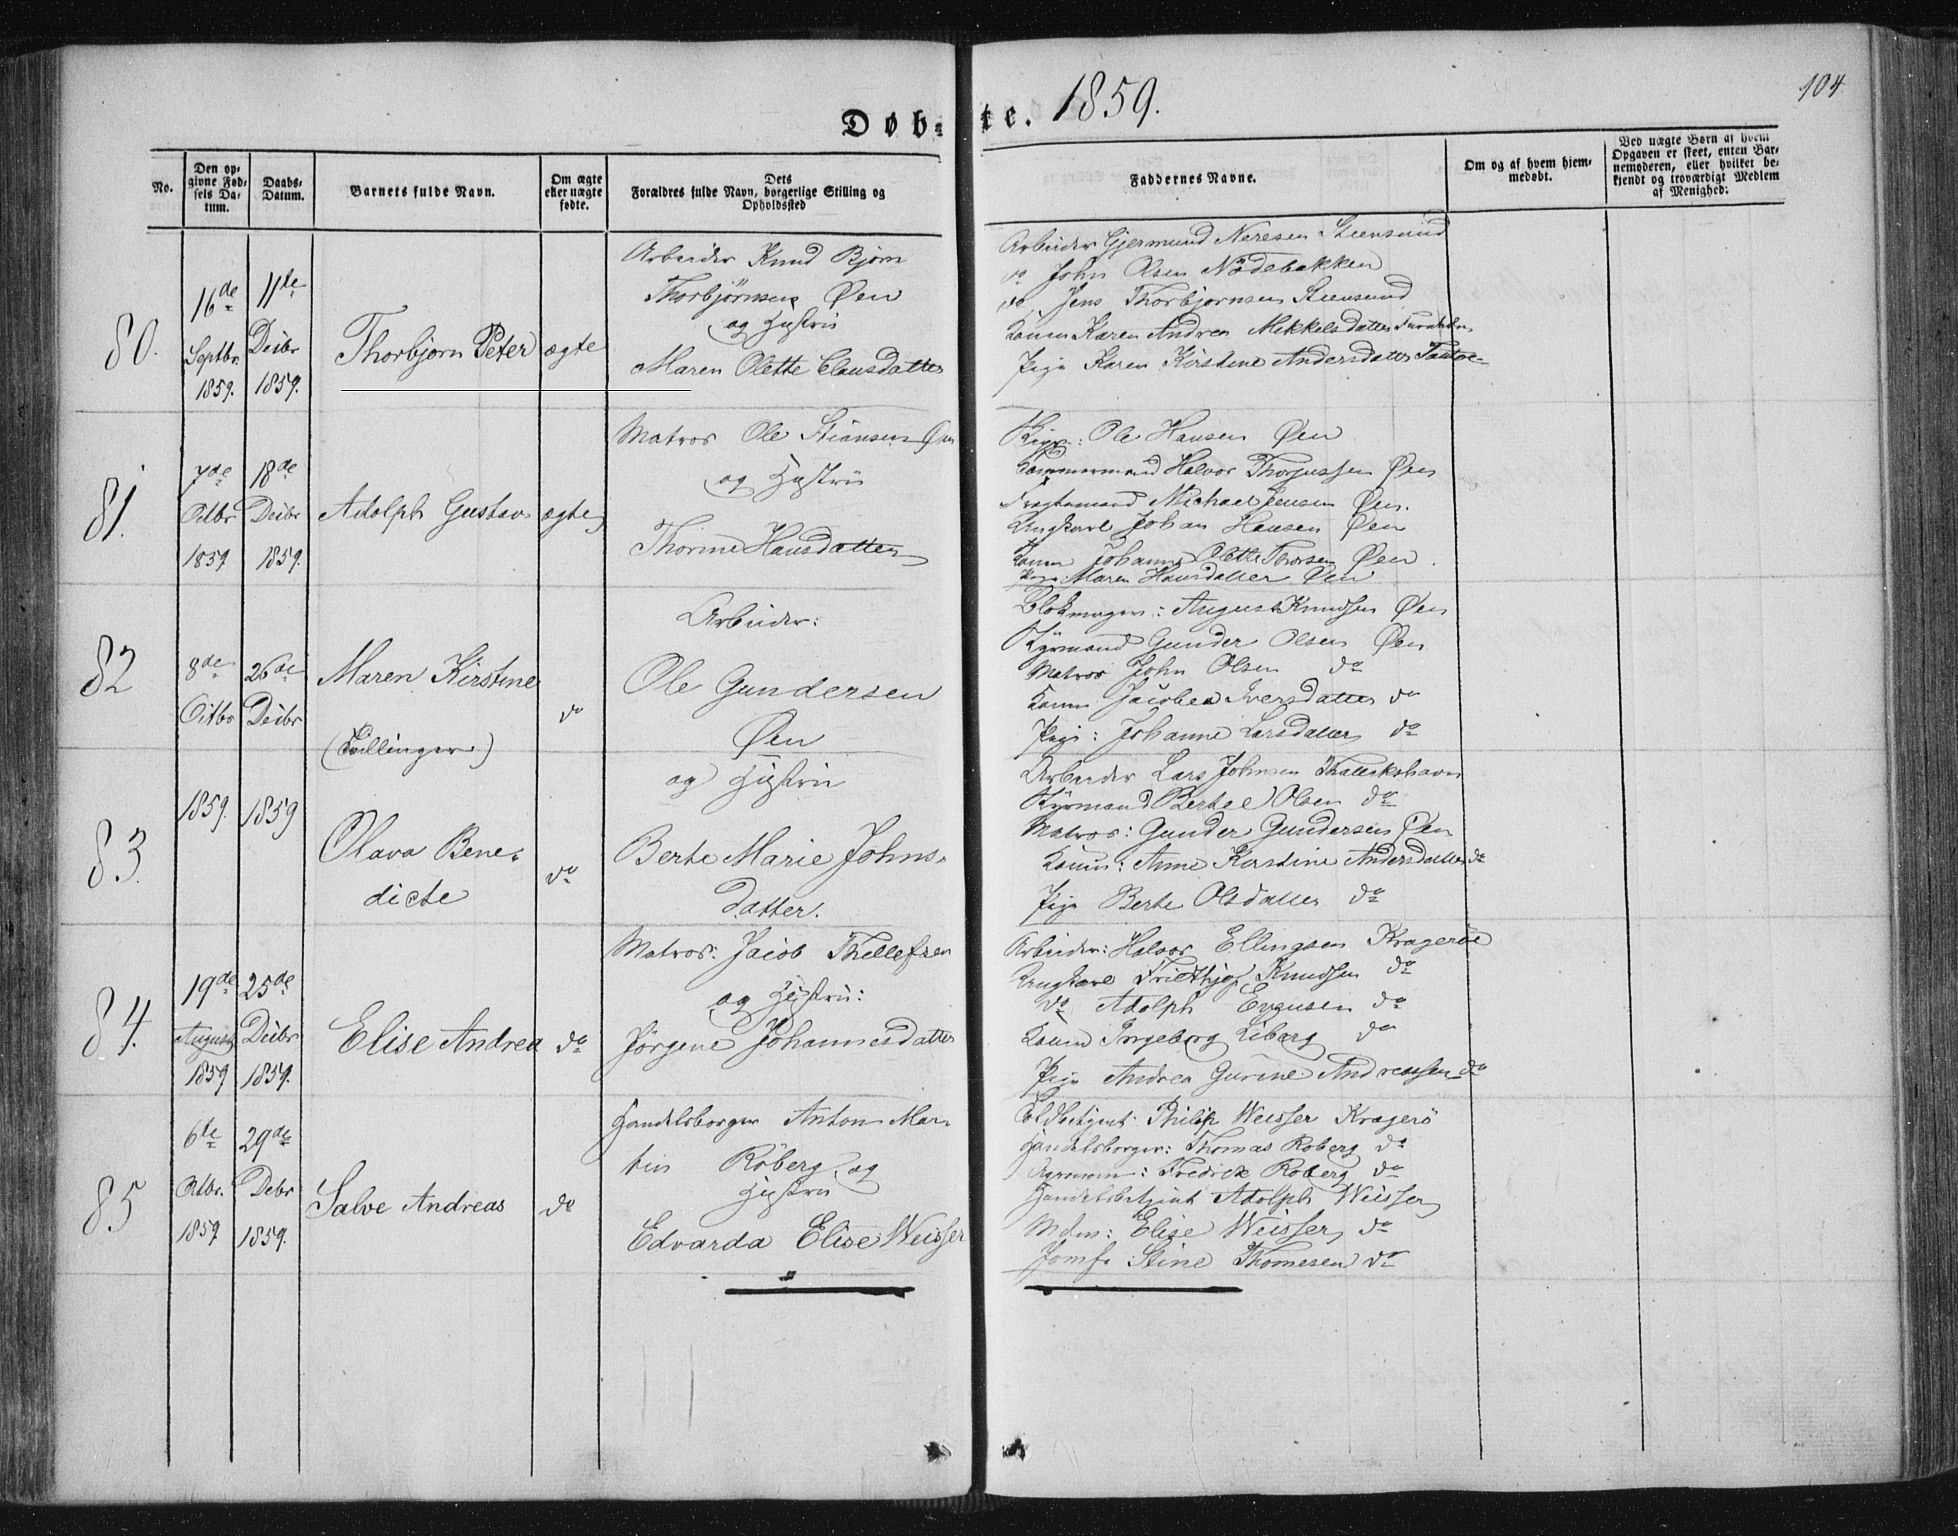 Døb-te. 1859.
104
No.
Den opgivne Fødsels Datum.
Daabs-Datum.
Barnets fulde Navn.
Om ægte eller uægte fødte.
Forældres fulde Navn, borgerlige Stilling og Dets Opholdssted
Faddernes Navne.
Om og af hvem hjemmedøbt.
Ved uægte Børn af hvem Opgaven er skeet, enten Barnemoderen, eller hvilket bekjendt og troværdigt Medlem af Menighed:
80.
16de Septbr. 1859.
11te Decbr 1859.
Thorbjorn Peter
ægte
Arbeider Knud Bjørn
Thorbjörnsen Øen
og Hustru
Maren Olette Clausdatter
Arbeider Gjermund Neresen Steensund
do John Olsen Nödebakken
do Jens Thorbjornsen Steensund
Konen Karen Andrea Mikkelsdatter
Pige Karen Kirstine Andersdatter
81.
7de Octbr 1859
18de Decbr 1859.
Adolph Gustav
ægte
Matros Ole Stiansen Øen
og Hustru
Thorine Hansdatter
Ole Hansen Øen
Tømmermand Halvor Thorjussen Øen
Fragtemand Michael Jensen Øen.
Ungkarl Johan Hansen Øen
Konen Johanne Olette Thorsen Øen.
Pige: Maren Hansdatter Øen
82
8de Octbr
26de Decbr
Maren Kirstine
do
(Tvillinger)
Arbeider:
Ole Gundersen
Øen
og Hustru
Blokmager: August Knudsen Øen
Styrmand Gunder Olsen Øen
Matros John Olsen do
Konen Jacobea Iversdatter do
Pige: Johanne Larsdatter do
83.
1859.
1859
Olava Bene-
dicte
do
Berte Marie Johns-
datter.
Arbeider Lars Johnsen
Styrmand Bertel Olsen do
Matros: Gunder Gundersen Øen
Konen: Anne Kirstine Andersdatter do
Pige Berte Olsdatter do
84.
19de August 1859
25de Decbr 1859.
Elise Andrea
do
Matros: Jacob Thellefsen
og Hustru:
Jörgene Johannesdatter
Arbeider: Halvor Ellingsen Krageröe
Ungkarl Friethjof Knudsen do
do Adolph Evensen do
Konen Ingeborg Liberg do
Pige Andrea Gurine Andreasen do
85
6te Octbr. 1859
29de Decbr 1859.
Salve Andreas
do
Handelsborger Anton Mar-
tin Röberg og
Hustru
Edvarda Elise Weisser
Toldbetjent: Philip Weisser Kragerö
Handelsborger: Thomas Roberg do
Fredrik Roberg do
Handelsbetjent Adolph Weisser
Mdm: Elise Weisser do
Jomfr. Stine Thomesen do